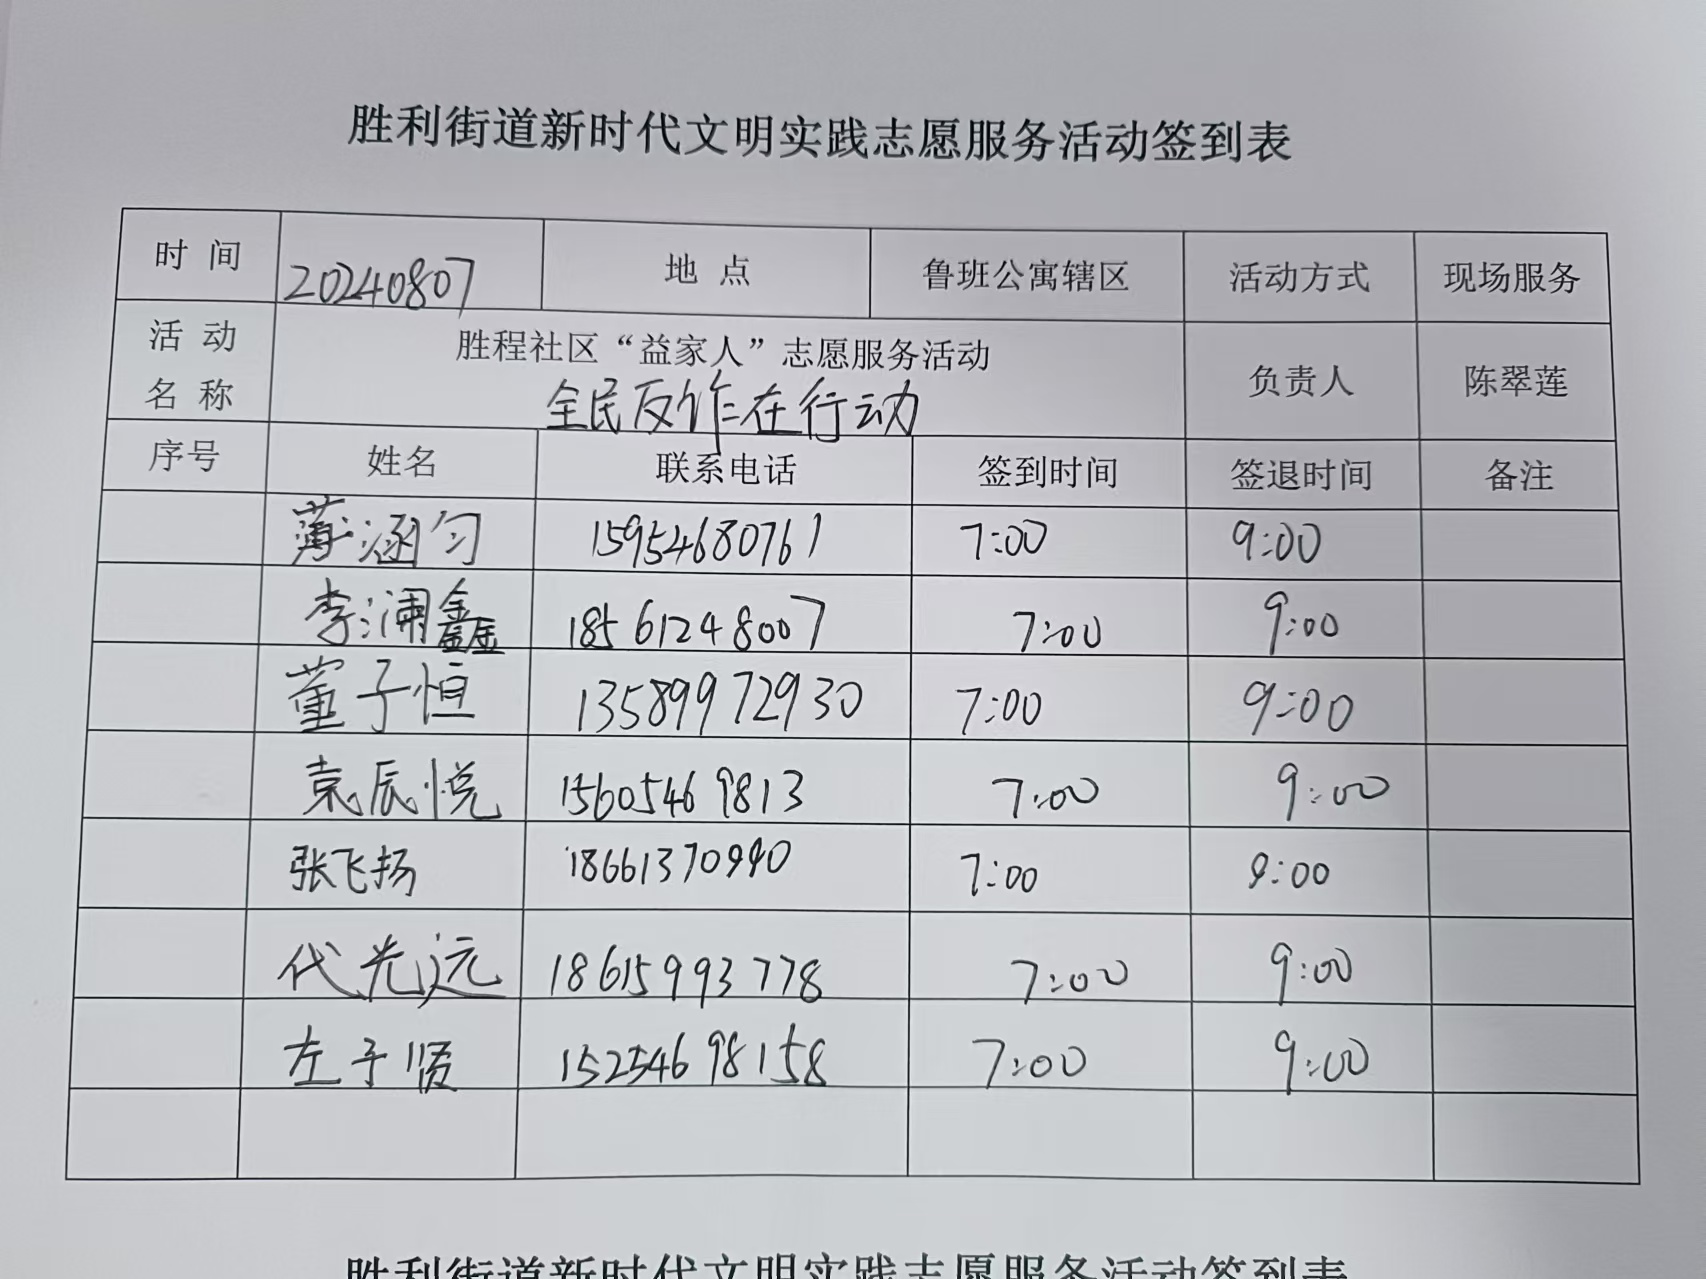 胜利街道新时代文明实践志愿服务活动签到表
时 间 20240807 地 点 鲁班公寓辖区 活动方式 现场服务
活 动 名 称 胜程社区“益家人”志愿服务活动 负责人 陈翠莲
全民反诈在行动
序号 姓名 联系电话 签到时间 签退时间 备注
薄涵匀 15954680761 7:00 9:00
李澜鑫 18561248007 7:00 9:00
董子恒 13589972930 7:00 9:00
袁辰悦 15605469813 7:00 9:00
张飞扬 18661370990 7:00 9:00
代光远 18615993778 7:00 9:00
左子贤 15254698158 7:00 9:00
胜利街道新时代文明实践志愿服务活动签到表